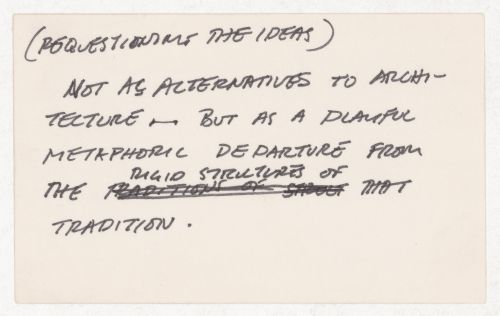 (REQUESTIONING THE IDEAS)
NOT AS ALTERNATIVES TO ARCHI-
TECTURE — BUT AS A PLAYFUL
METAPHORIC DEPARTURE FROM
RIGID STRUCTURES OF
THE TRADITIONS OF THAT
TRADITION.